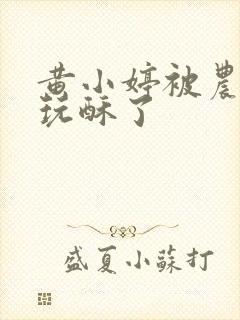 黄小婷被農
玩酥了
盛夏小蘇打